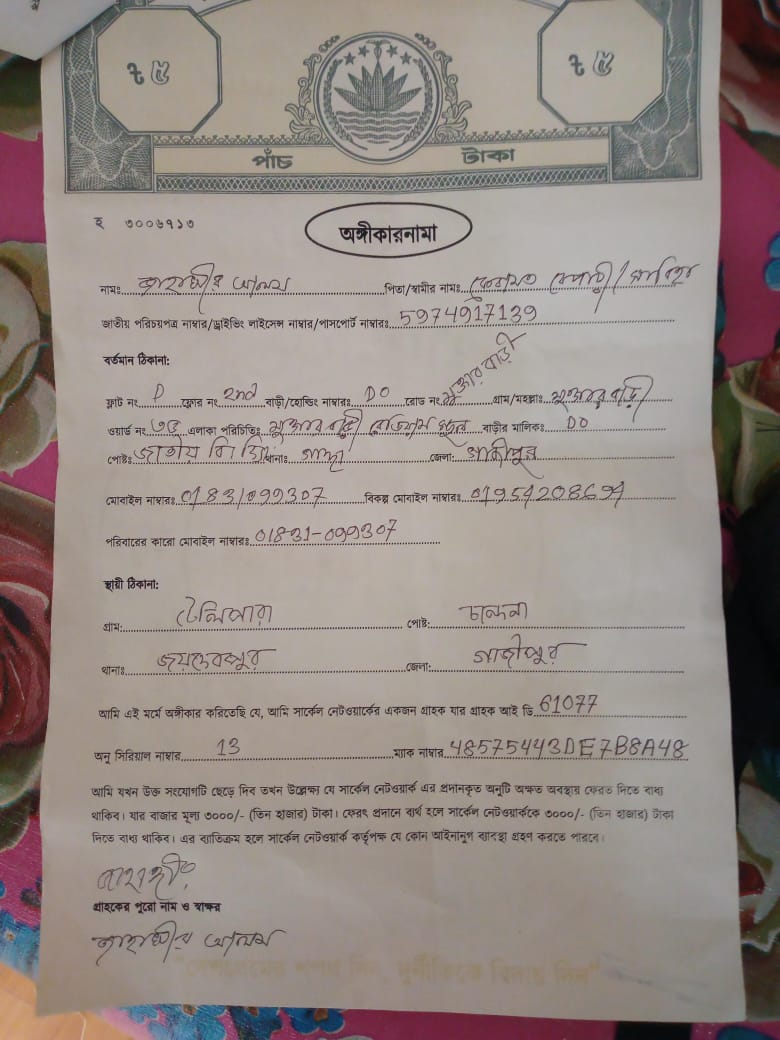 ৳ ৫ ৳ ৫
পাঁচ টাকা
হ ৩০০৬৭১৩
অঙ্গীকারনামা
নামঃ জাহাঙ্গীর আলম পিতা/স্বামীর নামঃ
জাতীয় পরিচয়পত্র নাম্বার/ড্রাইভিং লাইসেন্স নাম্বার/পাসপোর্ট নাম্বারঃ 5974917139
বর্তমান ঠিকানা:
ফ্লাট নং D ফ্লোর নং 2nd বাড়ী/হোল্ডিং নাম্বারঃ DO রোড নং গ্রাম/মহল্লাঃ
ওয়ার্ড নং ৩৫ এলাকা পরিচিতিঃ বাড়ীর মালিকঃ DO
পোষ্টঃ জাতীয় বি থানাঃ গাছা জেলা: গাজীপুর
মোবাইল নাম্বারঃ 01831099307 বিকল্প মোবাইল নাম্বারঃ 01954208694
পরিবারের কারো মোবাইল নাম্বারঃ 01831-099307
স্থায়ী ঠিকানা:
গ্রাম: টেলিপারা পোষ্ট: চান্দনা
থানাঃ জয়দেবপুর জেলা: গাজীপুর
আমি এই মর্মে অঙ্গীকার করিতেছি যে, আমি সার্কেল নেটওয়ার্কের একজন গ্রাহক যার গ্রাহক আই ডি 61077
অনু সিরিয়াল নাম্বার 13 ম্যাক নাম্বার 48575443DE7B8A48
আমি যখন উক্ত সংযোগটি ছেড়ে দিব তখন উল্লেক্ষ্য যে সার্কেল নেটওয়ার্ক এর প্রদানকৃত অনুটি অক্ষত অবস্থায় ফেরত দিতে বাধ্য
থাকিব। যার বাজার মূল্য ৩০০০/- (তিন হাজার) টাকা। ফেরৎ প্রদানে ব্যর্থ হলে সার্কেল নেটওয়ার্ককে ৩০০০/- (তিন হাজার) টাকা
দিতে বাধ্য থাকিব। এর ব্যাতিক্রম হলে সার্কেল নেটওয়ার্ক কর্তৃপক্ষ যে কোন আইনানুগ ব্যাবস্থা গ্রহণ করতে পারবে।
জাহাঙ্গীর
গ্রাহকের পুরো নাম ও স্বাক্ষর
জাহাঙ্গীর আলম